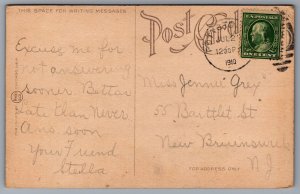 THIS SPACE FOR WRITING MESSAGES
Post Card
JUL 2
12 30 P
1910
U.S. POSTAGE
ONE CENT
Excuse me for
not answering
sooner Better
late than Never
Ans soon
Your Friend
Stella
Miss Jennie Grey
55 Bartlet St
New Brunswick
N J
FOR ADDRESS ONLY